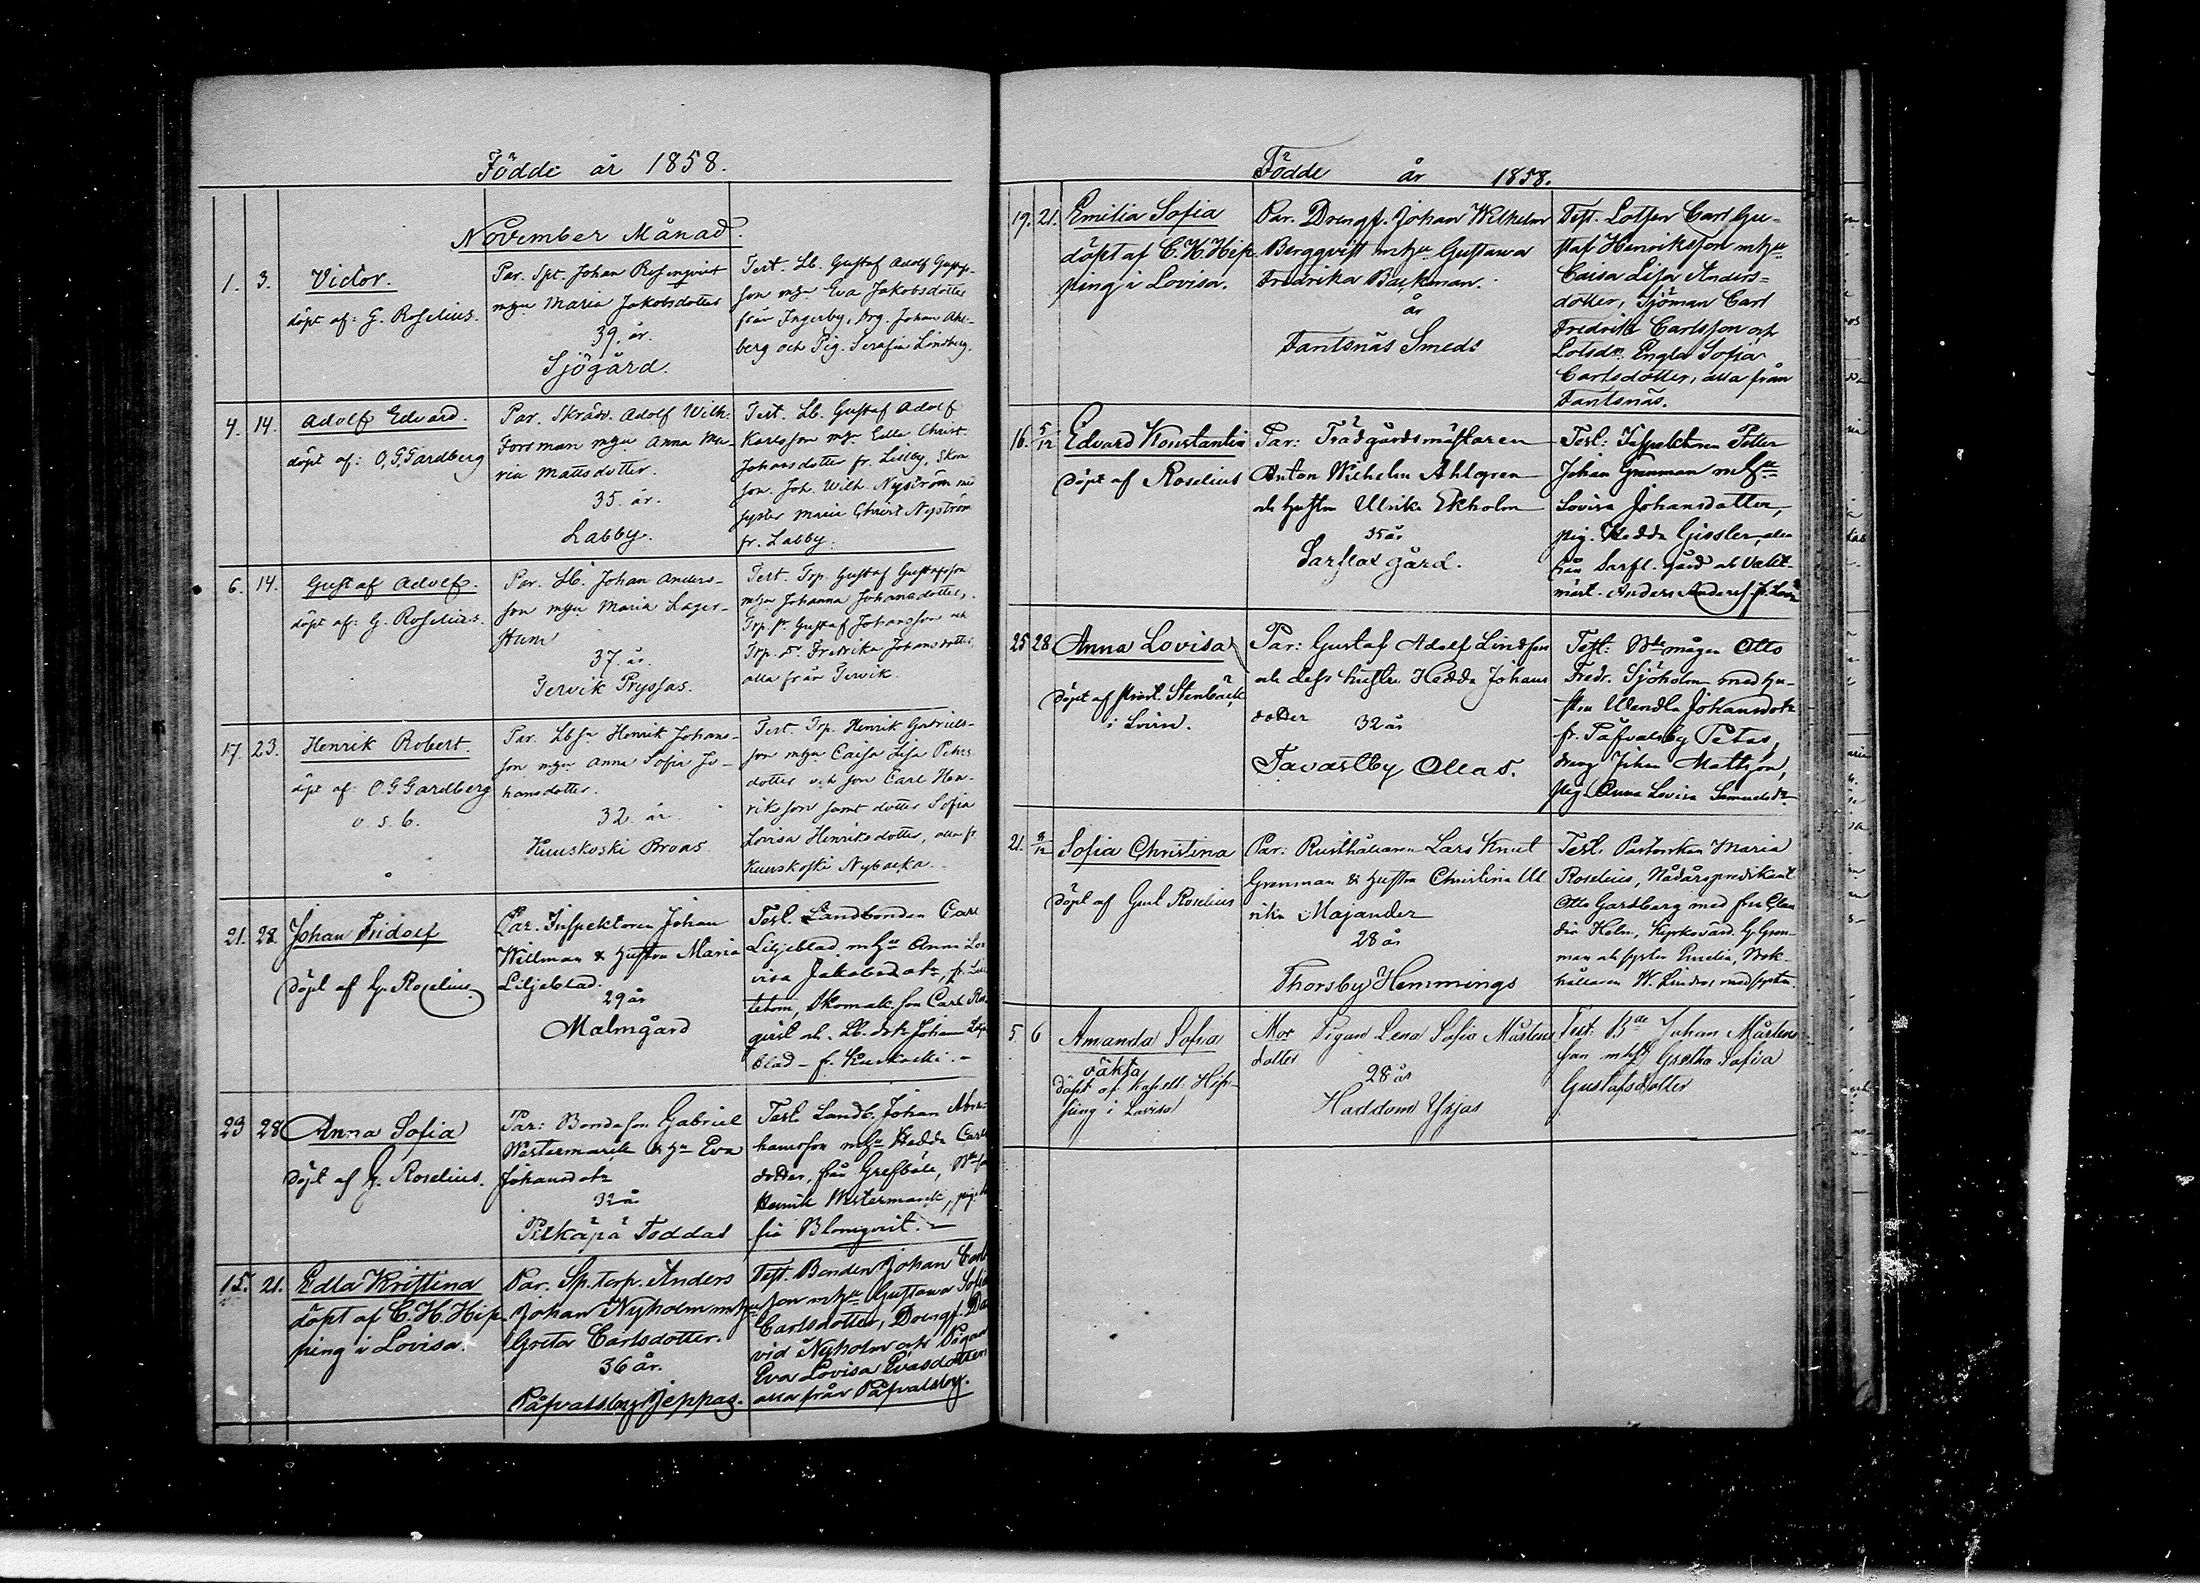 Födde år 1858.
November Månad.
1. 3. Victor.
döpt af: G. Roselius.
Par. Spt. Johan Rosenqvist
m hu Maria Jakobsdotter
39. år.
Sjögård.
Test. Lb. Gustaf Adolf Gustafs-
son m hu Eva Jakobsdotter
från Ingerby, Drg. Johan Ahl-
berg och Pig. Serafia Lindberg.
4. 14. Adolf Edvard.
döpt af: O. G. Gardberg
Par. Skräd. Adolf Wilh.
Forsman m hu Anna Ma-
ria Mattsdotter.
35. år.
Labby.
Test. Lb. Gustaf Adolf
Karlsson m hu Edla Christ.
Johansdotter fr. Liljby, Skom
son. Joh. Wilh. Nyström med
syster Maria Christ Nyström
fr. Labby.
6. 14. Gustaf Adolf.
döpt af: G. Roselius.
Par. Lb. Johan Anders-
son m hu Maria Lager-
stam
37. år.
Tervik Pryssas.
Test. Trp. Gustaf Gustafsson
m hu Johanna Johansdotter,
Trp. s. Gustaf Johansson och
Trp. dr. Fredrika Johansdotter
alla från Tervik.
17. 23. Henrik Robert.
döpt af: O. G Gardberg
v. s. b.
Par. Lbsn Henrik Johans-
son m hu Anna Sofia Jo-
hansdotter.
32. år.
Kuuskoski Broas
Test. Trp. Henrik Gabriels-
son m hu Caisa Lisa Peters
dotter och son Carl Hen-
riksson samt dotter Sofia
Lovisa Henriksdotter, alla fr.
Kuuskoski Nybacka.
21. 28. Johan Fridolf
döpt af G. Roselius.
Par. Inspektoren Johan
Willman & hustru Maria
Liljeblad.
29 år
Malmgård
Test. Landbonden Carl
Liljeblad m hu Anna Lo-
visa Jakobsdotr, fr.
Skomak. son Carl
och Lb. dotr Johan Lilje
blad – fr. Kuuskoski. –
23 28 Anna Sofia
döpt af G. Roselius.
Par: Bondeson Gabriel
Westermarck & hu Eva
Johansdotr
32 år
Pitkäpä Toddas
Test. Landb. Johan Abra-
hamsson m hu Hedda Carls
dotter, från Grefböle,
Henrik Westermarck, pig.
fia Blomqvist. –
15. 21. Edla Kristina
döpt af C. H. Hip
ping i Lovisa.
Par. Sp. torp. Anders
Johan Nyholm m hu
Greta Carlsdotter.
36 år.
Påfvalsby Jeppas.
Test. Bonden Johan Carls
son m hu Gustava Sofia
Carlsdotter, Drengs. Da
vid Nyholm och Pigan
Eva Lovisa Evasdotter
alla från Påfvalsby.
Födde år 1858.
19. 21. Emilia Sofia
döpt af C. H. Hip
ping i Lovisa.
Par. Drengs. Johan Wilhelm
Bergqvist m hu Gustava
Fredrika Backman.
år
Fantsnäs Smeds
Test. Lotsen Carl Gu-
staf Henriksson m hu
Caisa Lisa Anders-
dotter, Sjöman Carl
Fredrik Carlsson och
Lotsdr. Engla Sofia
Carlsdotter, alla från
Fantsnäs.
16. 5/12 Edvard Konstantin
döpt af Roselius
Par: Trädgårdsmästaren
Anton Wilhelm Ahlgren
och hustru Ulrika Ekholm
35 år
Sarflax gård.
Test: Inspektoren Petter
Johan Grenman m hu
Lovisa Johansdotter,
pig. Hedda Gissler, alla
från Sarfl. gård och Vakt-
mäst. Anders Anders fr. Lovisa
25 28 Anna Lovisa
döpt af Stenbäck
i Lovisa.
Par: Gustaf Adolf Lindfors
och dess hustru Hedda Johans
dotter 32 år
Tavastby Ollas.
Test: Bdemågen Otto
Fredr. Sjöholm med hu-
stru Wendla Johansdotr
fr. Påfvalsby Petas,
dreng Johan Mattsson,
pig. Anna Lovisa Samuelsdr.
21. 8/12 Sofia Christina
döpt af Gust Roselius
Par: Rusthållaren Lars Knut
Grenman & hustru Christina Ul
rika Majander
28 år
Thorsby Hemmings
Test. Pastorskan Maria
Roselius, Nådårspredikant
Otto Gardberg med fru Clau
dia Holm, Kyrkovärd. G. Gren-
man och syster Emelia, Bok-
hållaren W. Lindros med syster.
5 6 Amanda Sofia
oäkta
döpt af Kapell. Hip-
ping i Lovisa
Mor Pigan Lena Sofia Mårtens
dotter
28 år
Haddom Yrjas
Test: Bde Johan Mårtens
son m hu Gretha Sofia
Gustafsdotter